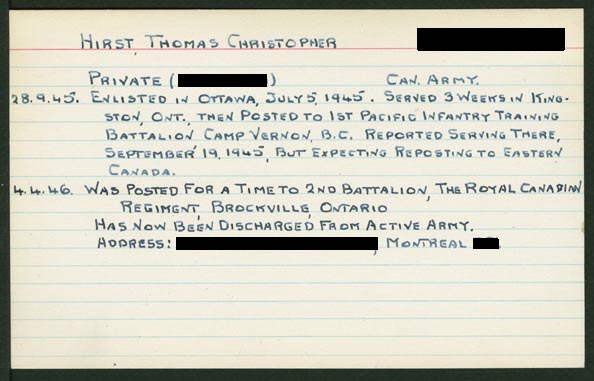 HIRST, THOMAS CHRISTOPHER
PRIVATE ( ) CAN. ARMY.
28.9.45. ENLISTED IN OTTAWA, JULY 5, 1945. SERVED 3 WEEKS IN KING-
STON, ONT., THEN POSTED TO 1ST PACIFIC INFANTRY TRAINING
BATTALION CAMP VERNON, B.C. REPORTED SERVING THERE,
SEPTEMBER 19, 1945, BUT EXPECTING REPOSTING TO EASTERN
CANADA.
4.4.46. WAS POSTED FOR A TIME TO 2ND BATTALION, THE ROYAL CANADIAN
REGIMENT, BROCKVILLE, ONTARIO
HAS NOW BEEN DISCHARGED FROM ACTIVE ARMY.
ADDRESS: , MONTREAL